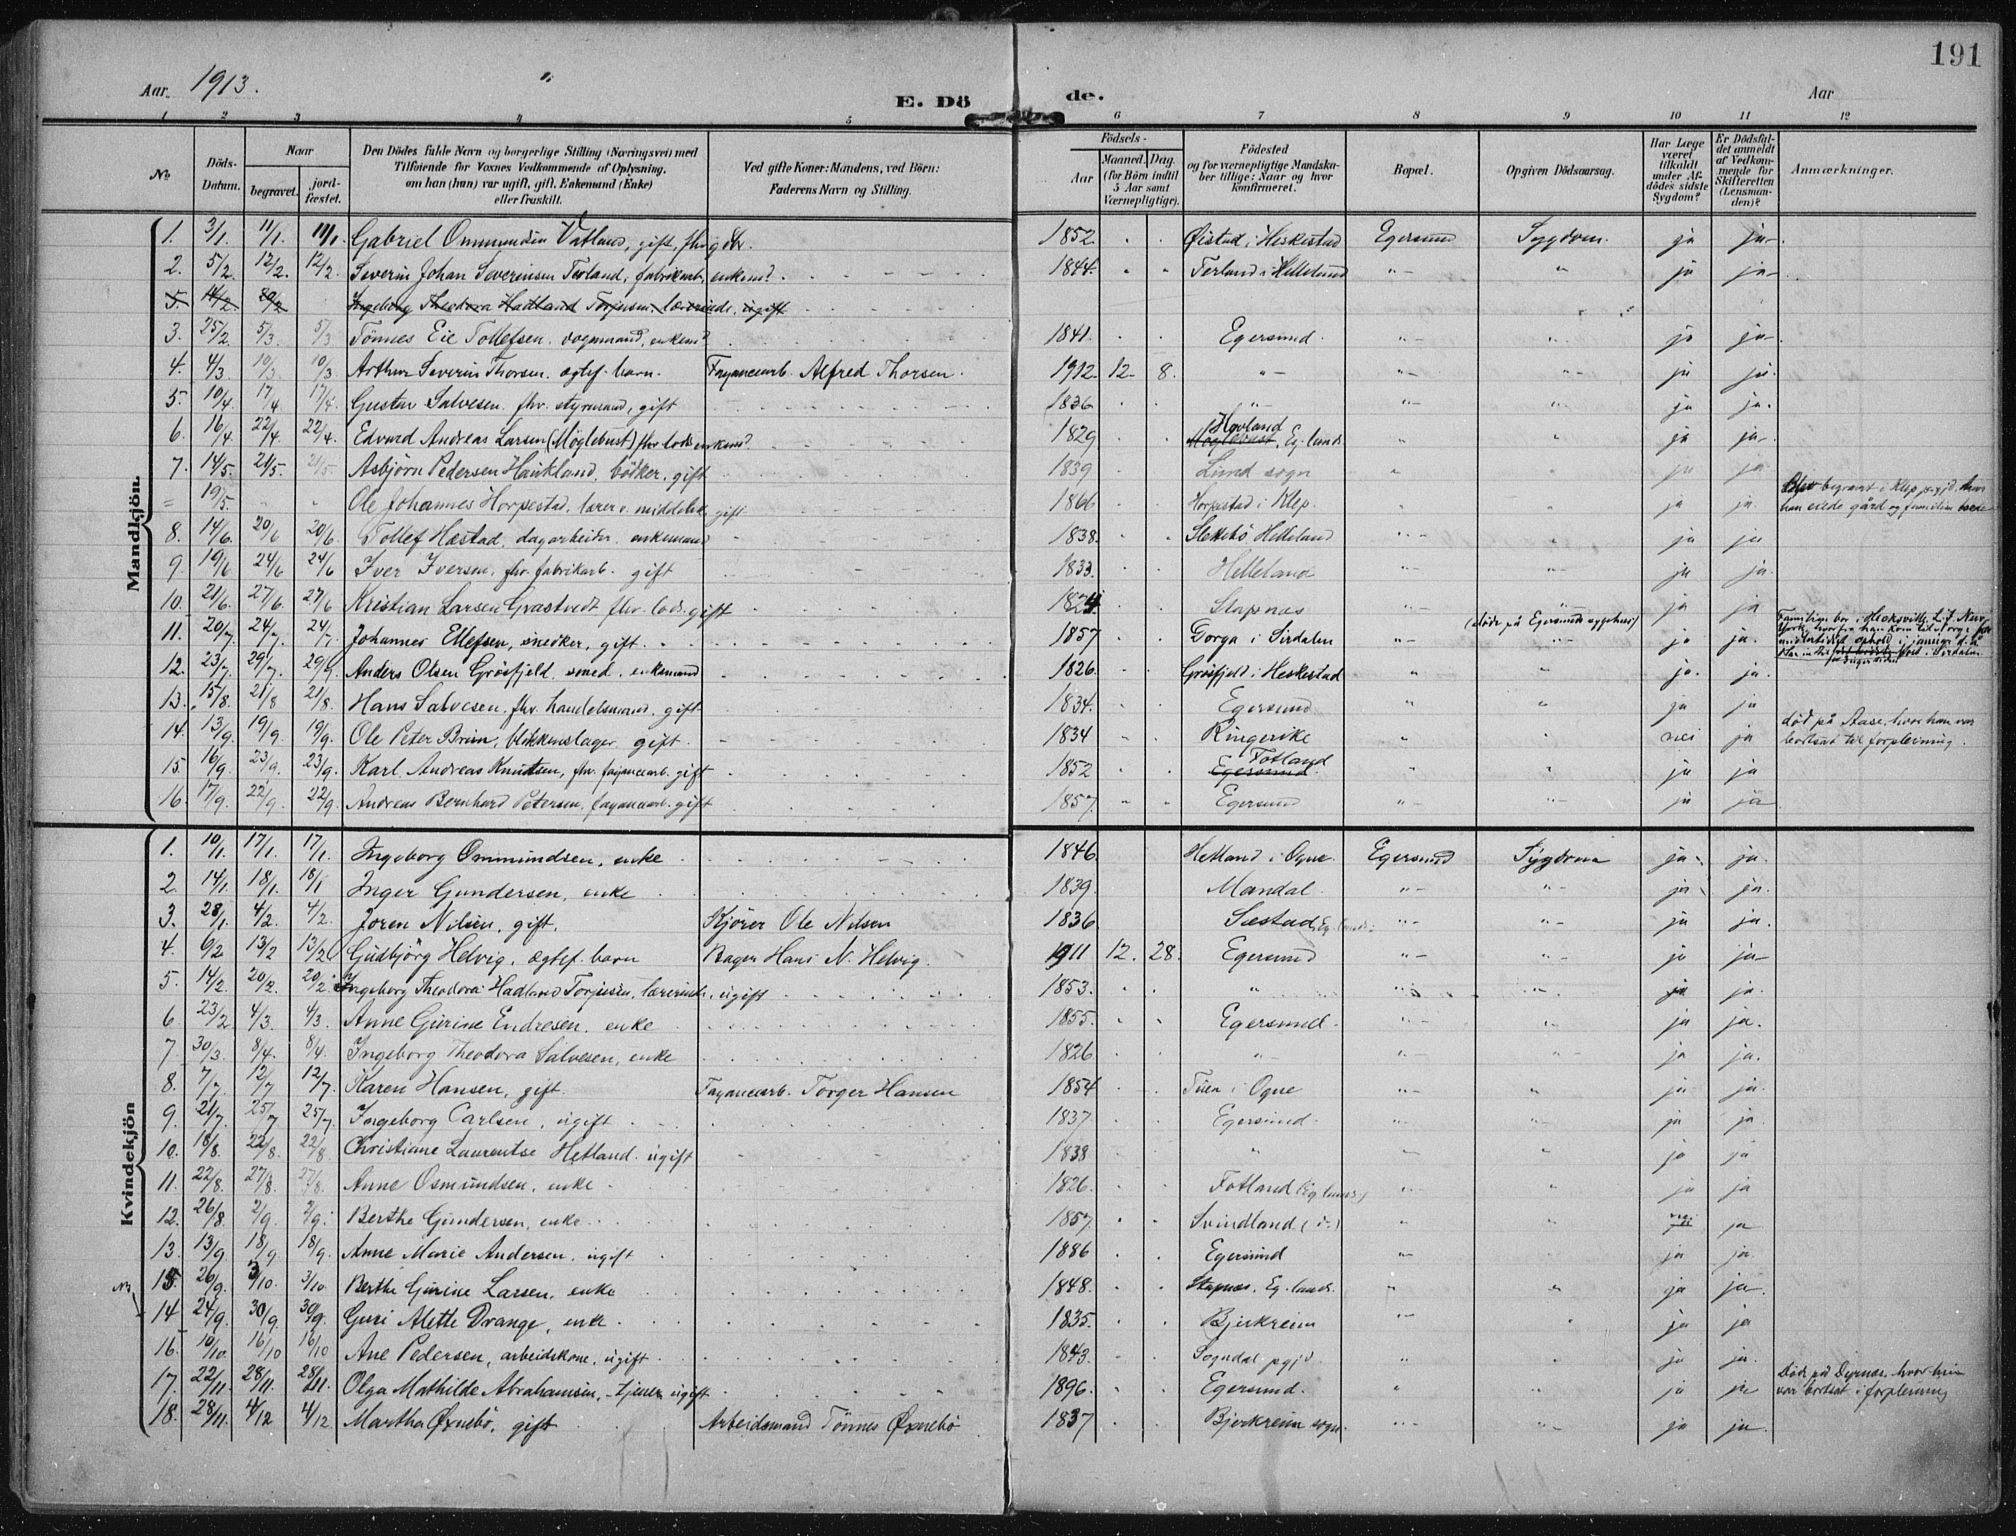 191
Aar 1913. E. Dö de. Aar
1 2 3 4 5 6 7 8 9 10 11 12
No Döds-Datum. Naar begravet. jord-fæstet. Den Dödes fulde Navn og borgerlige Stilling (Næringsvei) med Tilföiende for Voxnes Vedkommende af Oplysning, om han (hun) var ugift, gift, Enkemand (Enke) eller fraskilt. Ved gifte Koner: Mandens, ved Börn: Faderens Navn og Stilling. Födsels- Aar Maaned. Dag. (for Börn indtil 5 Aar samt Værnepligtige). Födested og for værnepligtige Mandskaber tillige: Naar og hvor konfirmeret. Bopæl. Opgiven Dödsaarsag. Har Læge været tilkaldt under Afdödes sidste Sygdom? Er Dödsfaldet anmeldt af Vedkommende for Skifteretten (Lensmanden)? Anmærkninger.
Mandkjön.
1. 3/1. 11/1. 11/1. Gabriel Ommundsen Vatland, gift, fhv gdbr. 1852. Øistad i Heskestad Egersund Sygdom. ja ja
2. 5/2. 12/2. 12/2. Severin Johan Severinsen Terland, fabrikarb, enkemd. 1844. Terland i Helleland "- " ja ja
5. 14/2. 20/2 Ingeborg Theodora Hadland Torjusen, lærerinde, ugift
3. 25/2 5/3. 5/3 Tönnes Eie Tollefsen. vognmand, enkemd 1841. Egersund. "- " ja ja
4. 4/3 10/3. 10/3. Arthur Severin Thorsen. ægtef. barn. Fayancearb. Alfred Thorsen. 1912. 12 8. "- "- "- ja ja.
5. 10/4. 17/4 17/4. Gustav Salvesen. fhv. styrmand, gift 1836 "- "- "- ja ja.
6. 16/4. 22/4. 22/4. Edvard Andreas Larsen (Möglebust) fhv. lods enkemd. 1829 Möglebust Hovland, Eg. lands " " ja ja
7. 14/5. 21/5. 21/5. Asbjörn Pedersen Haukland, bödker, gift 1839 Lund sogn " " ja ja
= 19/5. - - Ole Johannes Horpestad. lærer v. middelsk. gift 1866 Horpestad i Klep. " " ja ja. Blev begravet i Klep prgjd. hvor han eiede gård og familien boede
8. 14/6. 20/6 20/6. Tollef Hæstad, dagarbeider, enkemand 1838. Slettebö Helleland " " ja ja
9. 19/6 24/6 24/6 Iver Iversen, fhv. fabrikarb. gift 1833. Helleland " " ja ja.
10. 21/6. 27/6. 27/6 Kristian Larsen Grastvedt fhv. lods. gift 1824 Stapnæs "- "- ja ja
11. 20/7 24/7. 24/7. Johannes Ellefsen, snedker, gift. 1857. Gorga i Sirdalen " (döde på Egersunds sygehus) ja ja. Familien bor i
12. 23/7 29/7. 29/7. Anders Olsen Grösfjeld, smed. enkemand 1826. Grösfjeld i Heskestad " " ja. ja.
13. 15/8. 21/8 21/8. Hans Salvesen. fhv. handelsmand. gift 1834. Egersund " " ja ja
14. 13/9 19/9. 19/9. Ole Peter Bruun, blikkenslager. gift. 1834 Ringerike " " nei ja död på Aase, hvor han var bortsat til forpleining.
15. 16/9. 23/9. 23/9. Karl Andreas Knutsen, fhv. fayancearb. gift 1852 Egersund. Fotland " " ja ja
16. 17/9. 22/9. 22/9 Andreas Bernhard Petersen, fayancearb. gift 1857. Egersund "- "- ja ja
Kvindekjön
1. 10/1. 17/1. 17/1. Ingeborg Ommundsen, enke 1846. Hetland i Ogne. Egersund Sygdom ja ja.
2. 14/1. 18/1. 18/1 Inger Gundersen, enke 1839. Mandal. "- "- ja ja.
3. 28/1. 4/2. 4/2. Joren Nilsen, gift. Kjörer Ole Nilsen 1836 Sæstad, Eg. lands. "- "- ja ja.
4. 6/2 13/2 13/2 Gudbjörg Helvig, ægtef. barn Bager Hans N. Helvig. 1911 12. 28. Egersund "- "- ja ja
5. 14/2. 20/2. 20/2. Ingeborg Theodora Hadland Torjusen, lærerinde, ugift 1853. " "- "- ja ja.
6 23/2 4/3. 4/3. Anne Gurine Endresen. enke 1855. Egersund. "- "- ja ja.
7. 30/3. 8/4. 8/4. Ingeborg Theodora Salvesen, enke 1826. "- "- "- ja ja.
8. 7/7. 12/7 12/7. Karen Hansen, gift. Fayancearb. Torger Hansen 1854 Tuen i Ogne " "- ja ja.
9. 21/7. 25/7 25/7. Ingeborg Carlsen, ugift 1837. Egersund. " " ja ja.
10. 18/8. 22/8. 22/8 Christiane Laurentse Hetland. ugift 1838 " " " ja ja
11. 22/8. 27/8. 27/8. Anne Osmundsen, enke 1826. Fotland (Eg. lands) " " ja ja
12. 26/8. 2/9. 2/9. Berthe Gundersen, enke 1857. Svindland (") "- "- nei ja
13. 13/9. 18/9. 18/9. Anne Marie Andersen, ugift 1886 Egersund "- " ja ja.
15. 26/9. 3/10. 3/10 Berthe Gurine Larsen, enke 1848. Stapnæs. Eg. lands. " " ja ja
14 24/9. 30/9. 30/9. Guri Alette Drange, enke 1835. Bjerkreim "- " ja ja
16. 10/10. 16/10 16/10 Ane Pedersen, arbeidskone, ugift 1843. Sogndal pgjd " " ja ja.
17. 22/11. 28/11. 28/11. Olga Mathilde Abrahamsen, tjener, ugift 1896. Egersund. " "- ja ja Död på Dyrnæs, hvor hun var bortsat i forpleining
18. 28/11. 4/12 4/12 Martha Øxnebö, gift Arbeidsmand Tönnes Øxnebö 1837 Bjerkreim sogn "- "- ja ja